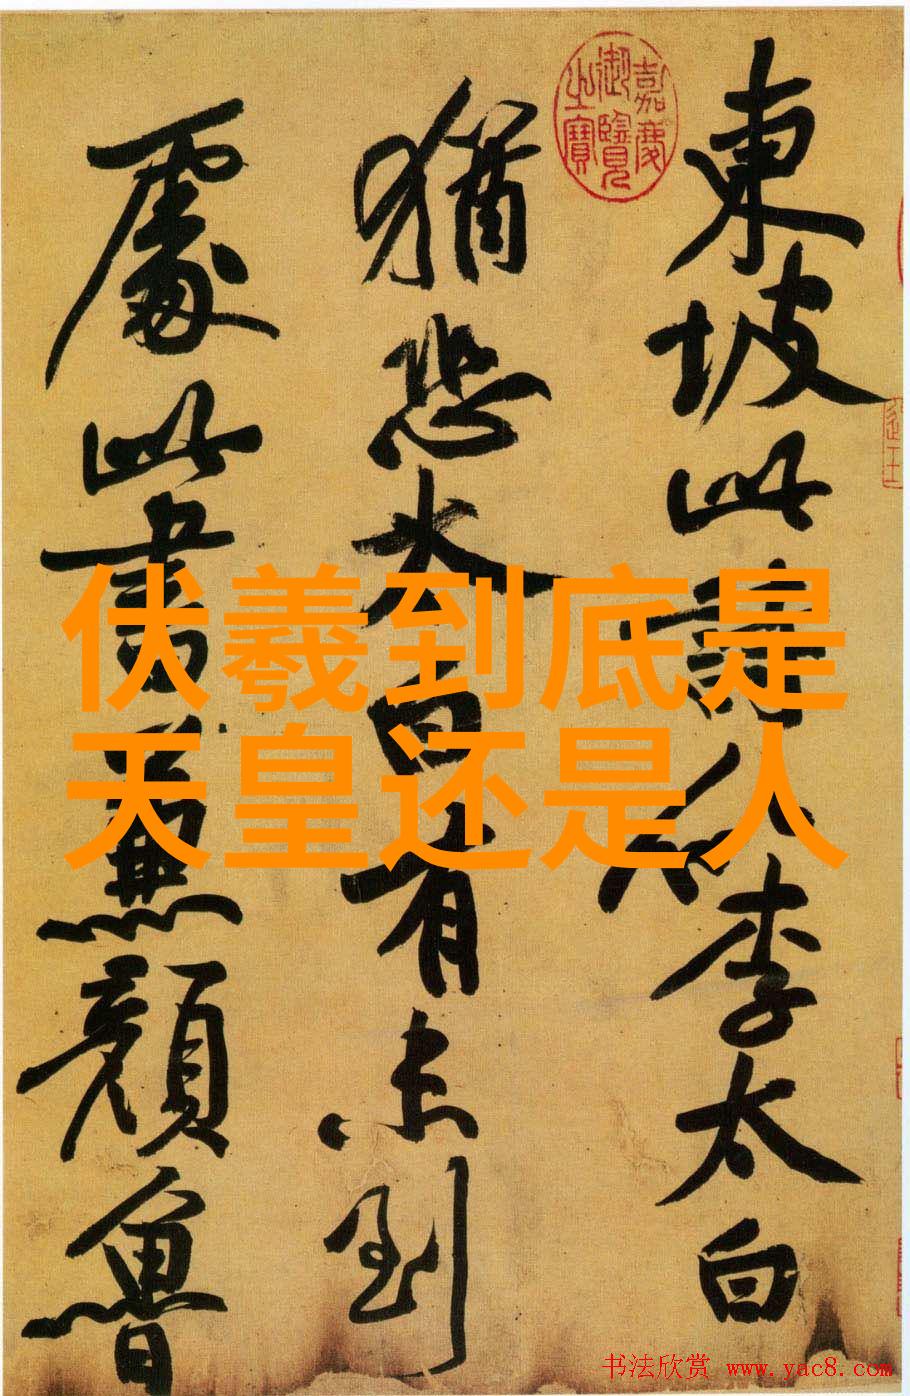 東坡此詩似李太白
猶恐太白有未到
處此書兼顏魯
嘉慶御覽之寶
伏羲到底是
天皇还是人
书法欣赏 www.yac8.com